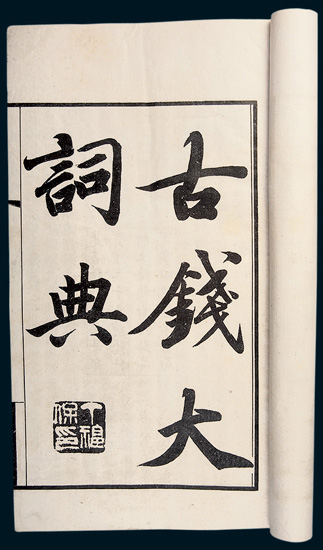 古錢大
詞典
丁福保印